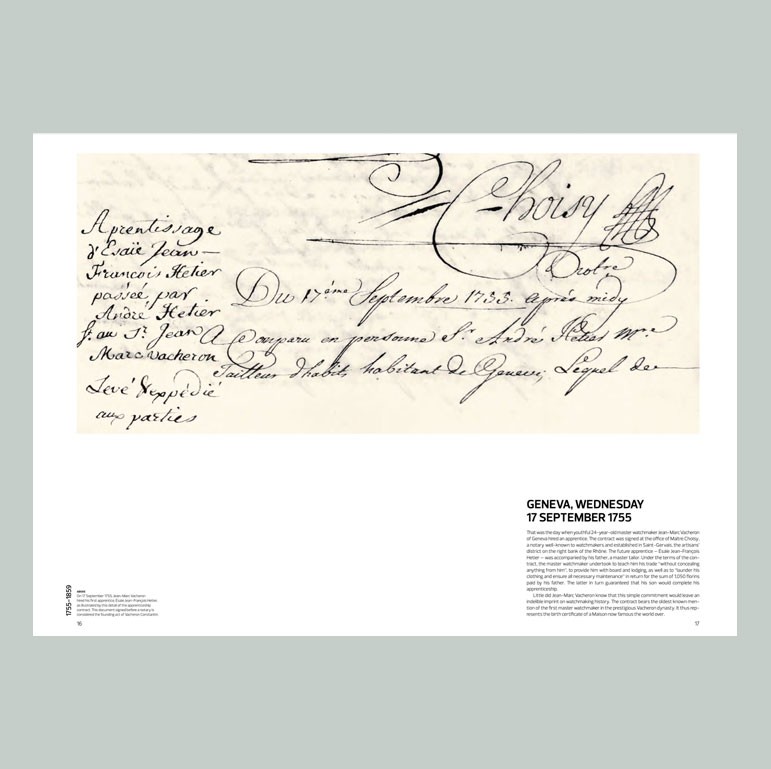 Choisy
Notre
Aprentissage
d'Esaïe Jean—
Francois Hetier
passée par
André Hetier
Sr. au Sr. Jean
Marc Vacheron
Levé & expédié
aux parties
Du 17ème Septembre 1755. après midy
A Comparu en personne Sr. André Hetier Mtre
Tailleur d'habits habitant de Geneve, Lequel de
GENEVA, WEDNESDAY
17 SEPTEMBER 1755
That was the day when youthful 24-year-old master watchmaker Jean-Marc Vacheron
of Geneva hired an apprentice. The contract was signed at the office of Maître Choisy,
a notary well-known to watchmakers and established in Saint-Gervais, the artisans'
district on the right bank of the Rhône. The future apprentice – Esaïe Jean-François
Hetier – was accompanied by his father, a master tailor. Under the terms of the con-
tract, the master watchmaker undertook to teach him his trade "without concealing
anything from him", to provide him with board and lodging, as well as to "launder his
clothing and ensure all necessary maintenance" in return for the sum of 1,050 florins
paid by his father. The latter in turn guaranteed that his son would complete his
apprenticeship.
Little did Jean-Marc Vacheron know that this simple commitment would leave an
indelible imprint on watchmaking history. The contract bears the oldest known men-
tion of the first master watchmaker in the prestigious Vacheron dynasty. It thus rep-
resents the birth certificate of a Maison now famous the world over.
1755–1859
ABOVE
On 17 September 1755, Jean-Marc Vacheron
hired his first apprentice, Esaïe Jean-François Hetier,
as illustrated by this detail of the apprenticeship
contract. This document signed before a notary is
considered the founding act of Vacheron Constantin.
16
17